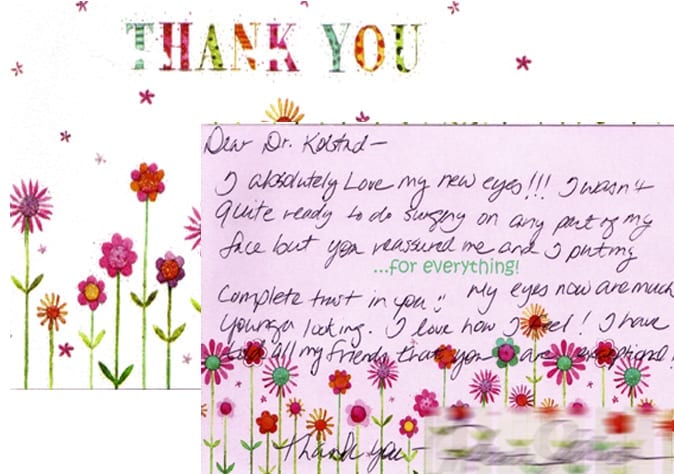 THANK YOU
Dear Dr. Kolstad–
I absolutely Love my new eyes!!! I wasn't
quite ready to do surgery on any part of my
face but you reassured me and I put my
...for everything!
Complete trust in you :) My eyes now are much
younger looking. I love how I feel! I have
told all my friends that you are exceptional!
Thank you–